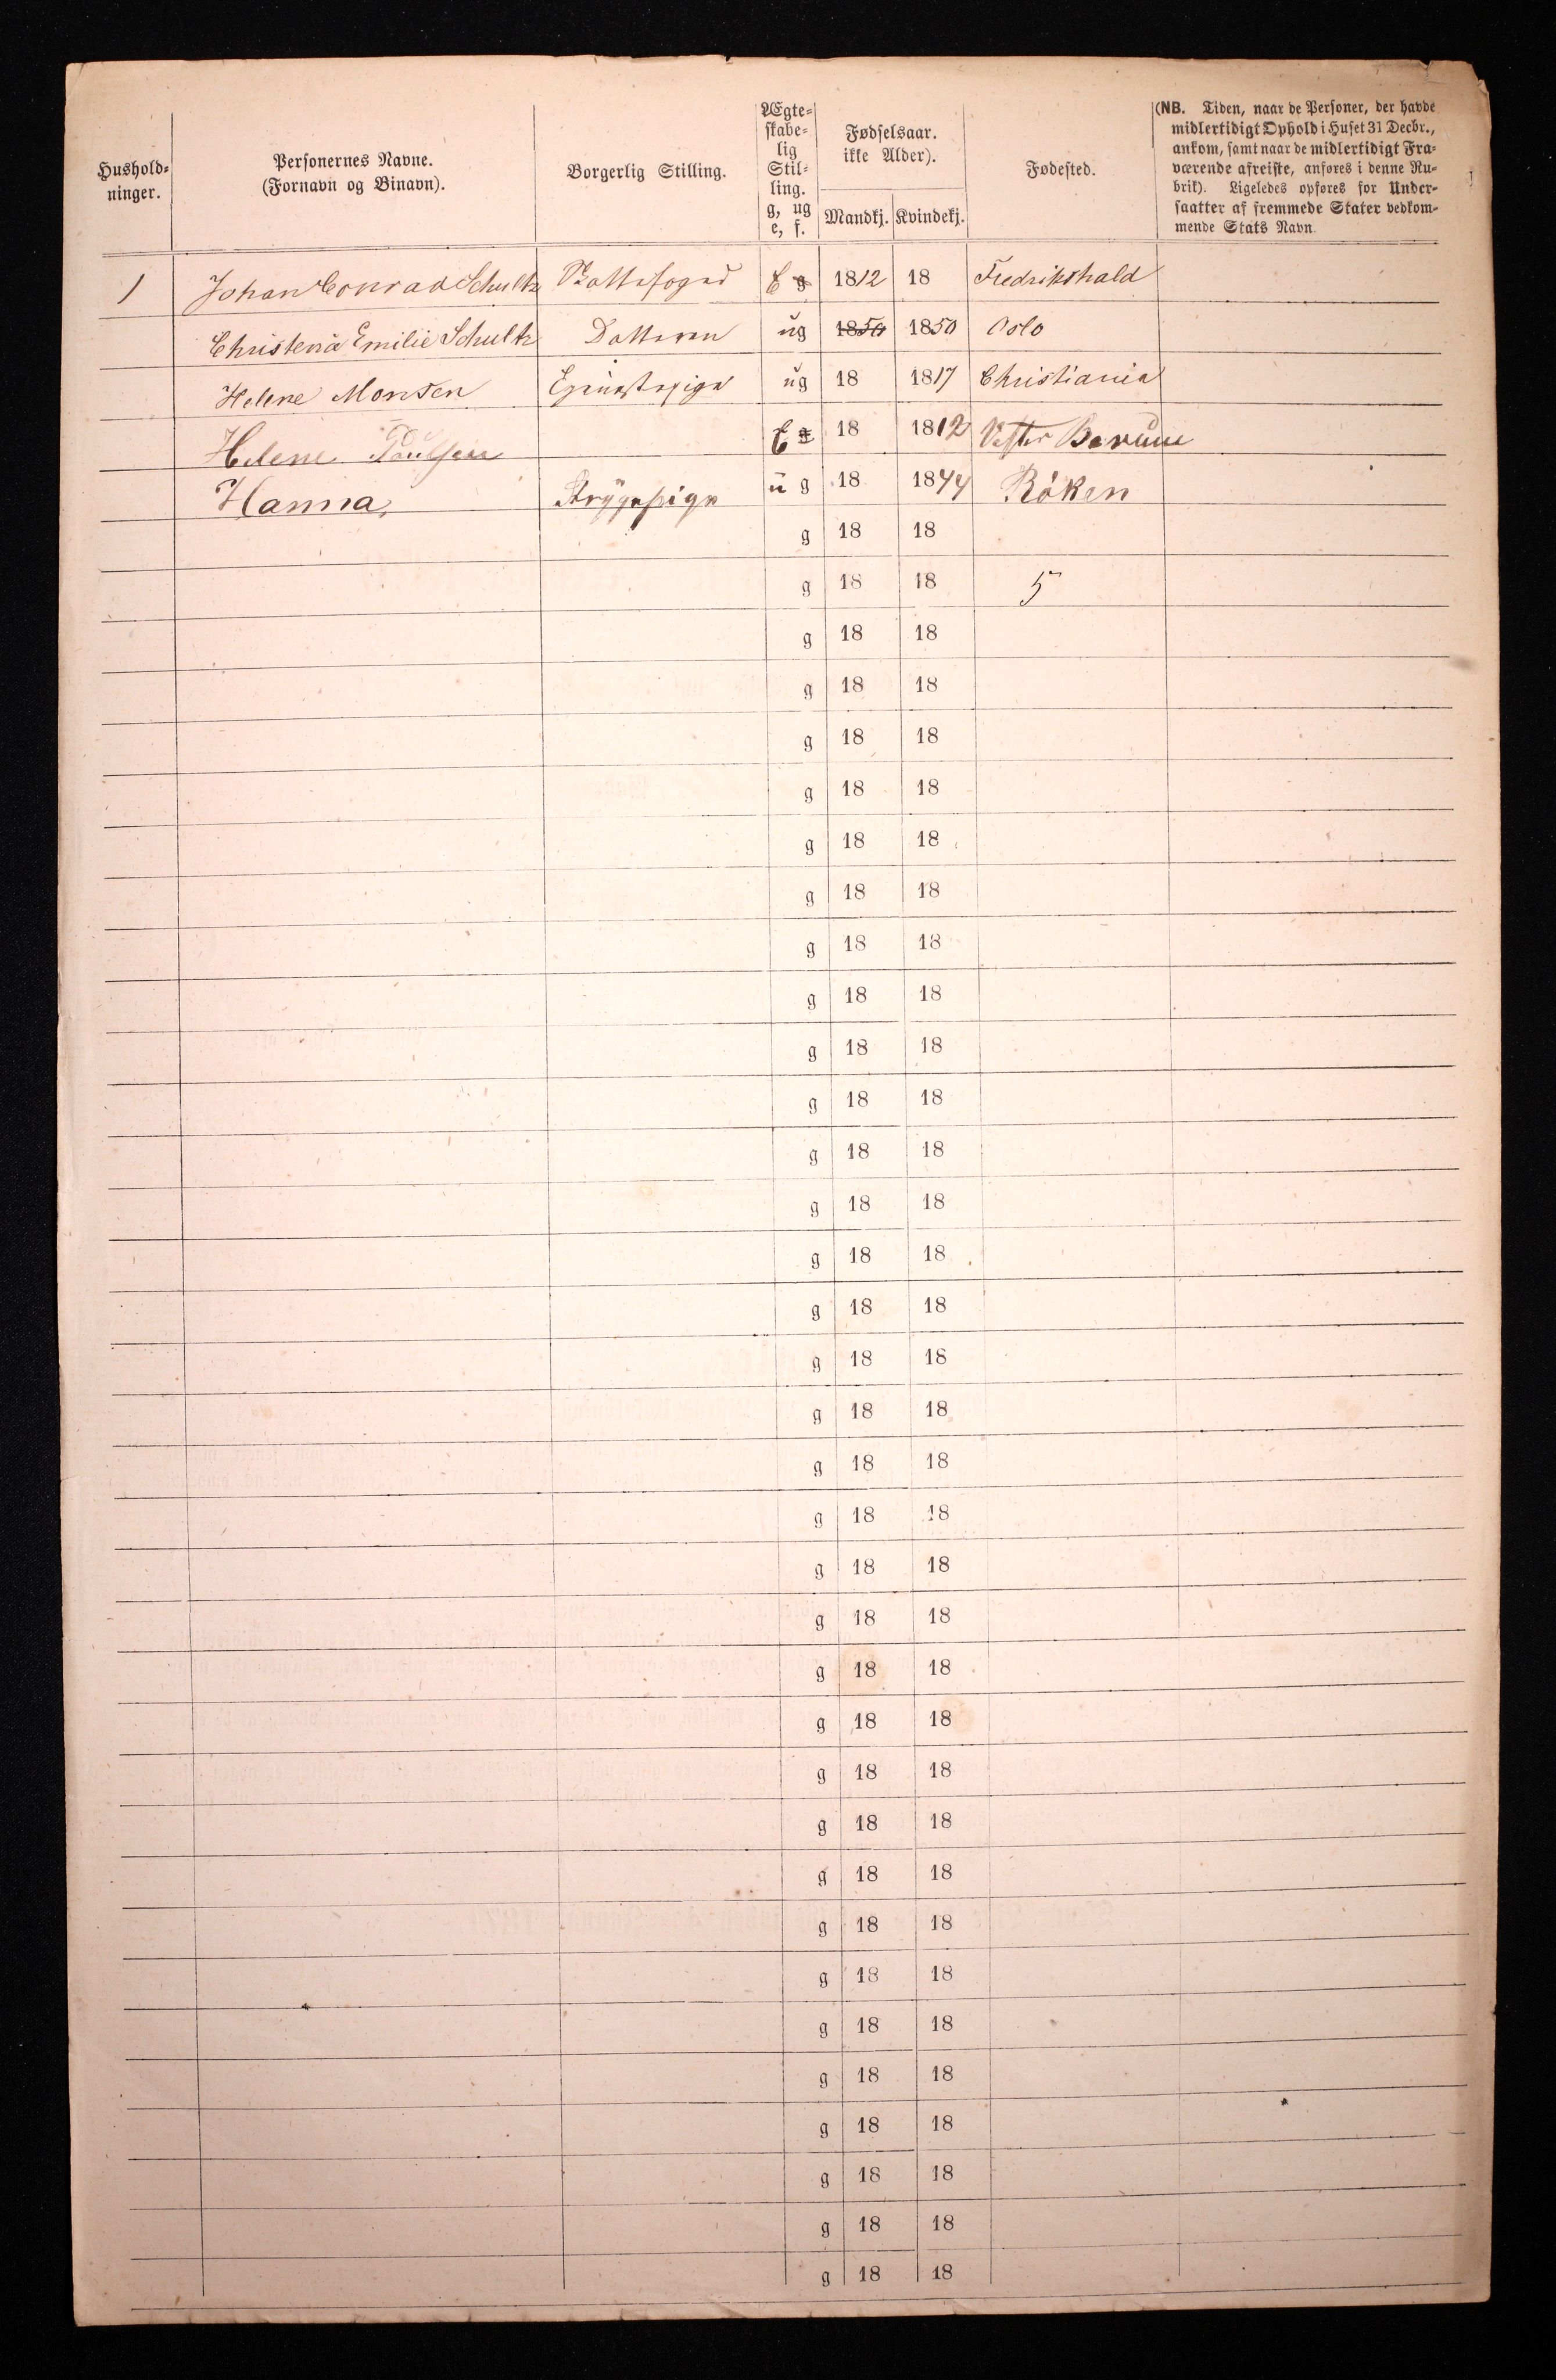 Hushold-
ninger.
Personernes Navne.
(Fornavn og Binavn).
Borgerlig Stilling.
Ægte-
skabe-
lig
Stil-
ling.
g, ug
e, f.
Fødselsaar.
ikke Alder).
Mandkj. Kvindekj.
Fødested.
(NB. Tiden, naar de Personer, der havde
midlertidigt Ophold i Huset 31 Decbr.,
ankom, samt naar de midlertidigt Fra-
værende afreiste, anføres i denne Ru-
brik). Ligeledes opføres for Under-
saatter af fremmede Stater vedkom-
mende Stats Navn.
1 Johan Conrad Schultz E g 1812 18 Fredrikshald
Christena Emilie Schultz Datteren ug 1850 1850 Oslo
Helene Monsen ug 18 1817 Christiania
Helene Poulsen E 18 1812 Vester Berum
Hanna, Strygepige u g 18 1844 Röken
g 18 18
g 18 18 5
g 18 18
g 18 18
g 18 18
g 18 18
g 18 18
g 18 18
g 18 18
g 18 18
g 18 18
g 18 18
g 18 18
g 18 18
g 18 18
g 18 18
g 18 18
g 18 18
g 18 18
g 18 18
g 18 18
g 18 18
g 18 18
g 18 18
g 18 18
g 18 18
g 18 18
g 18 18
g 18 18
g 18 18
g 18 18
g 18 18
g 18 18
g 18 18
g 18 18